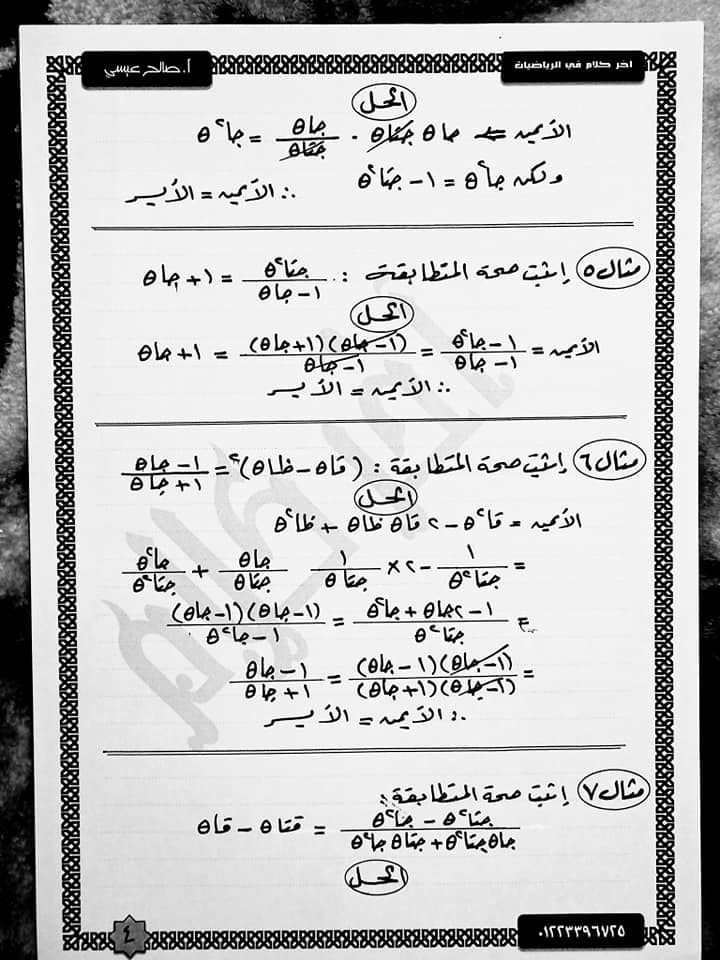 اخر كلام في الرياضيات
أ. صالح عيسي
الحل
الأيمن = جاθ جتاθ · جاθ/جتاθ = جا²θ
ولكن جا²θ = ١ - جتا²θ ∴ الأيمن = الأيسر
مثال ٥ إثبت صحة المتطابقة : جتا²θ/(١ - جاθ) = ١ + جاθ
الحل
الأيمن = (١ - جا²θ)/(١ - جاθ) = (١ - جاθ)(١ + جاθ)/(١ - جاθ) = ١ + جاθ
∴ الأيمن = الأيسر
مثال ٦ إثبت صحة المتطابقة : (قاθ - ظاθ)² = (١ - جاθ)/(١ + جاθ)
الحل
الأيمن = قا²θ - ٢ قاθ ظاθ + ظا²θ
= ١/جتا²θ - ٢ × ١/جتاθ جاθ/جتاθ + جا²θ/جتا²θ
= (١ - ٢جاθ + جا²θ)/جتا²θ = (١ - جاθ)(١ - جاθ)/(١ - جا²θ)
= (١ - جاθ)(١ - جاθ)/(١ - جاθ)(١ + جاθ) = (١ - جاθ)/(١ + جاθ)
∴ الأيمن = الأيسر
مثال ٧ إثبت صحة المتطابقة :
(جتا²θ - جا²θ)/(جاθ جتا²θ + جتاθ جا²θ) = قتاθ - قاθ
الحل
٠١٢٢٣٣٩٦٧٢٥
٤